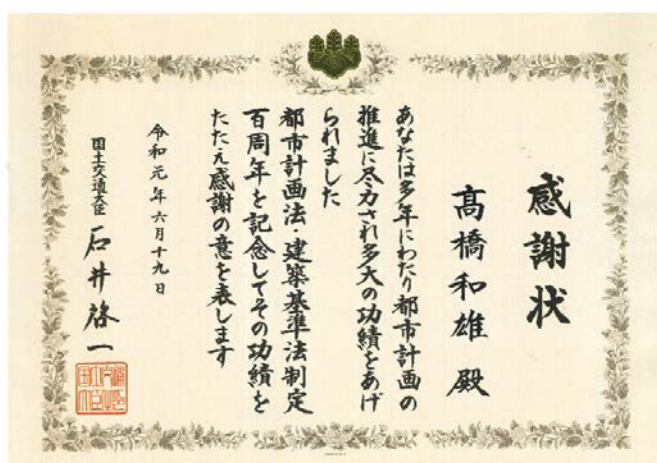 感謝状
髙橋和雄 殿
あなたは多年にわたり都市計画の
推進に尽力され多大の功績をあげ
られました
都市計画法・建築基準法制定
百周年を記念してその功績を
たたえ感謝の意を表します
令和元年六月十九日
国土交通大臣 石井啓一